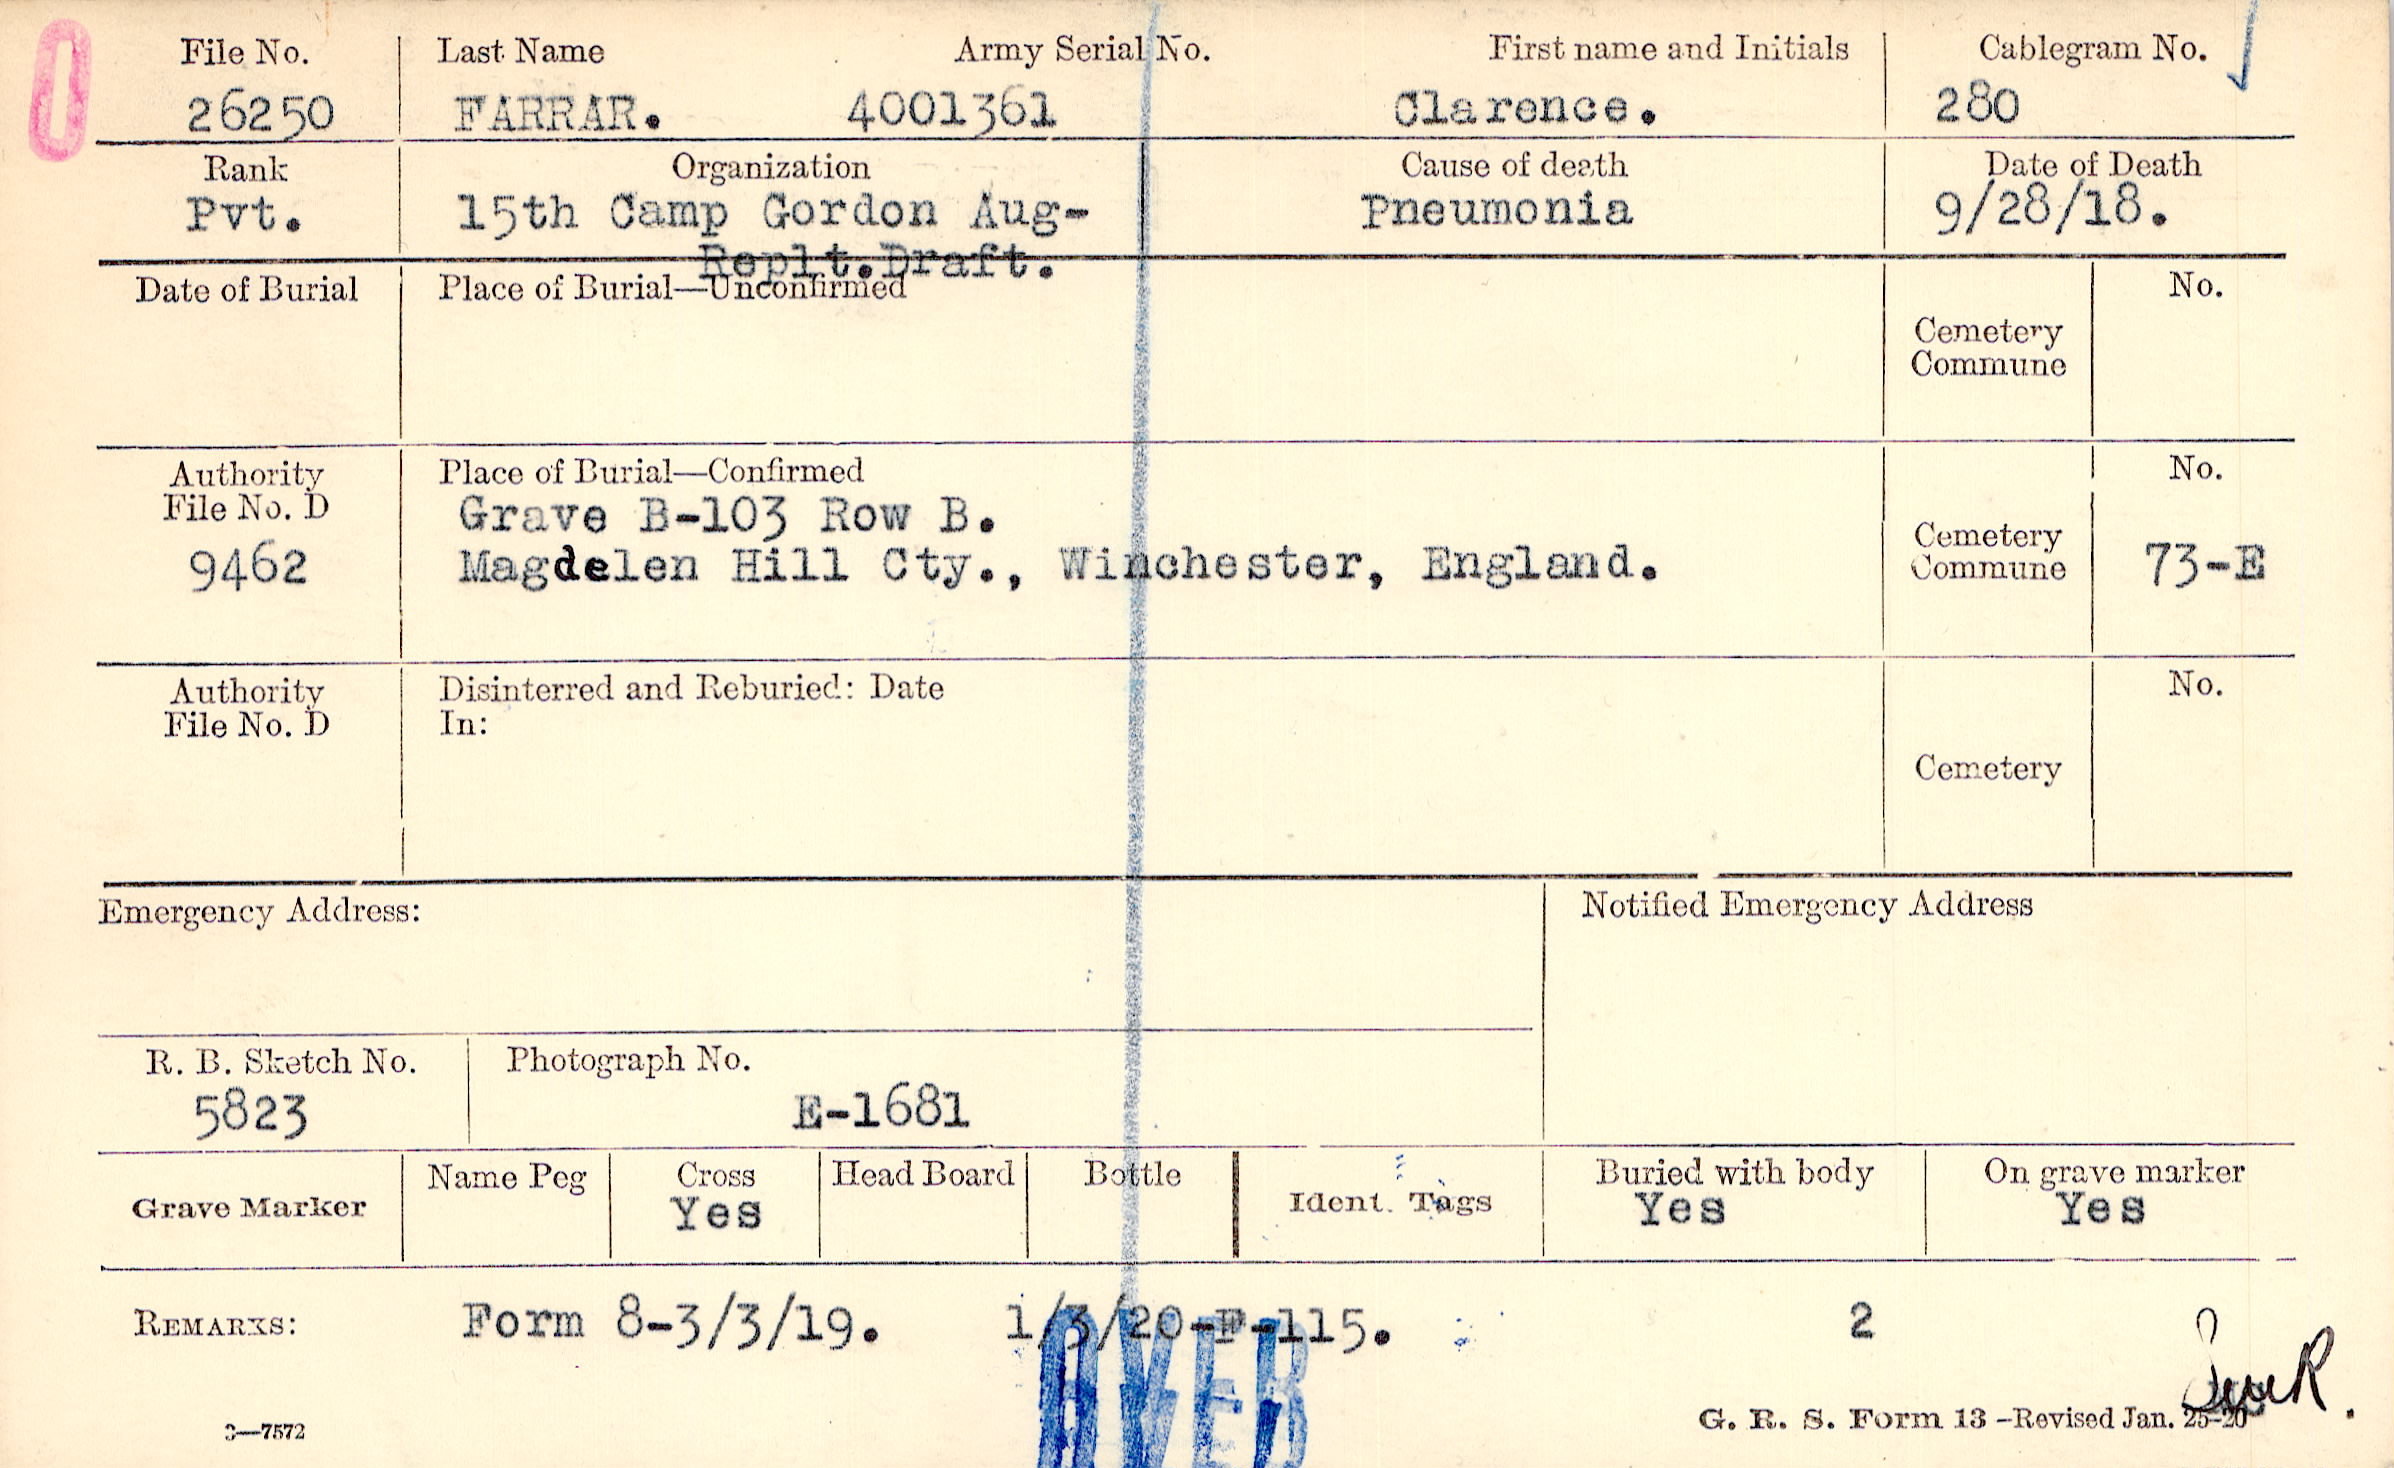 File No. Last Name Army Serial No. First name and Initials Cablegram No.
26250 FARRAR. 4001361 Clarence. 280
Rank Organization Cause of death Date of Death
Pvt. 15th Camp Gordon Aug- Pneumonia 9/28/18.
Replt.Draft.
Date of Burial Place of Burial—Unconfirmed No.
Cemetery
Commune
Authority Place of Burial—Confirmed No.
File No. D Grave B-103 Row B.
Cemetery
9462 Magdelen Hill Cty., Winchester, England. Commune 73-E
Authority Disinterred and Reburied: Date No.
File No. D In:
Cemetery
Emergency Address: Notified Emergency Address
R. B. Sketch No. Photograph No.
5823 E-1681
Grave Marker Name Peg Cross Head Board Bottle Ident. Tags Buried with body On grave marker
Yes Yes Yes
REMARKS: Form 8-3/3/19. 1/3/20-F-115. 2
OVER
3—7572 G. R. S. Form 13 -Revised Jan. 25-20